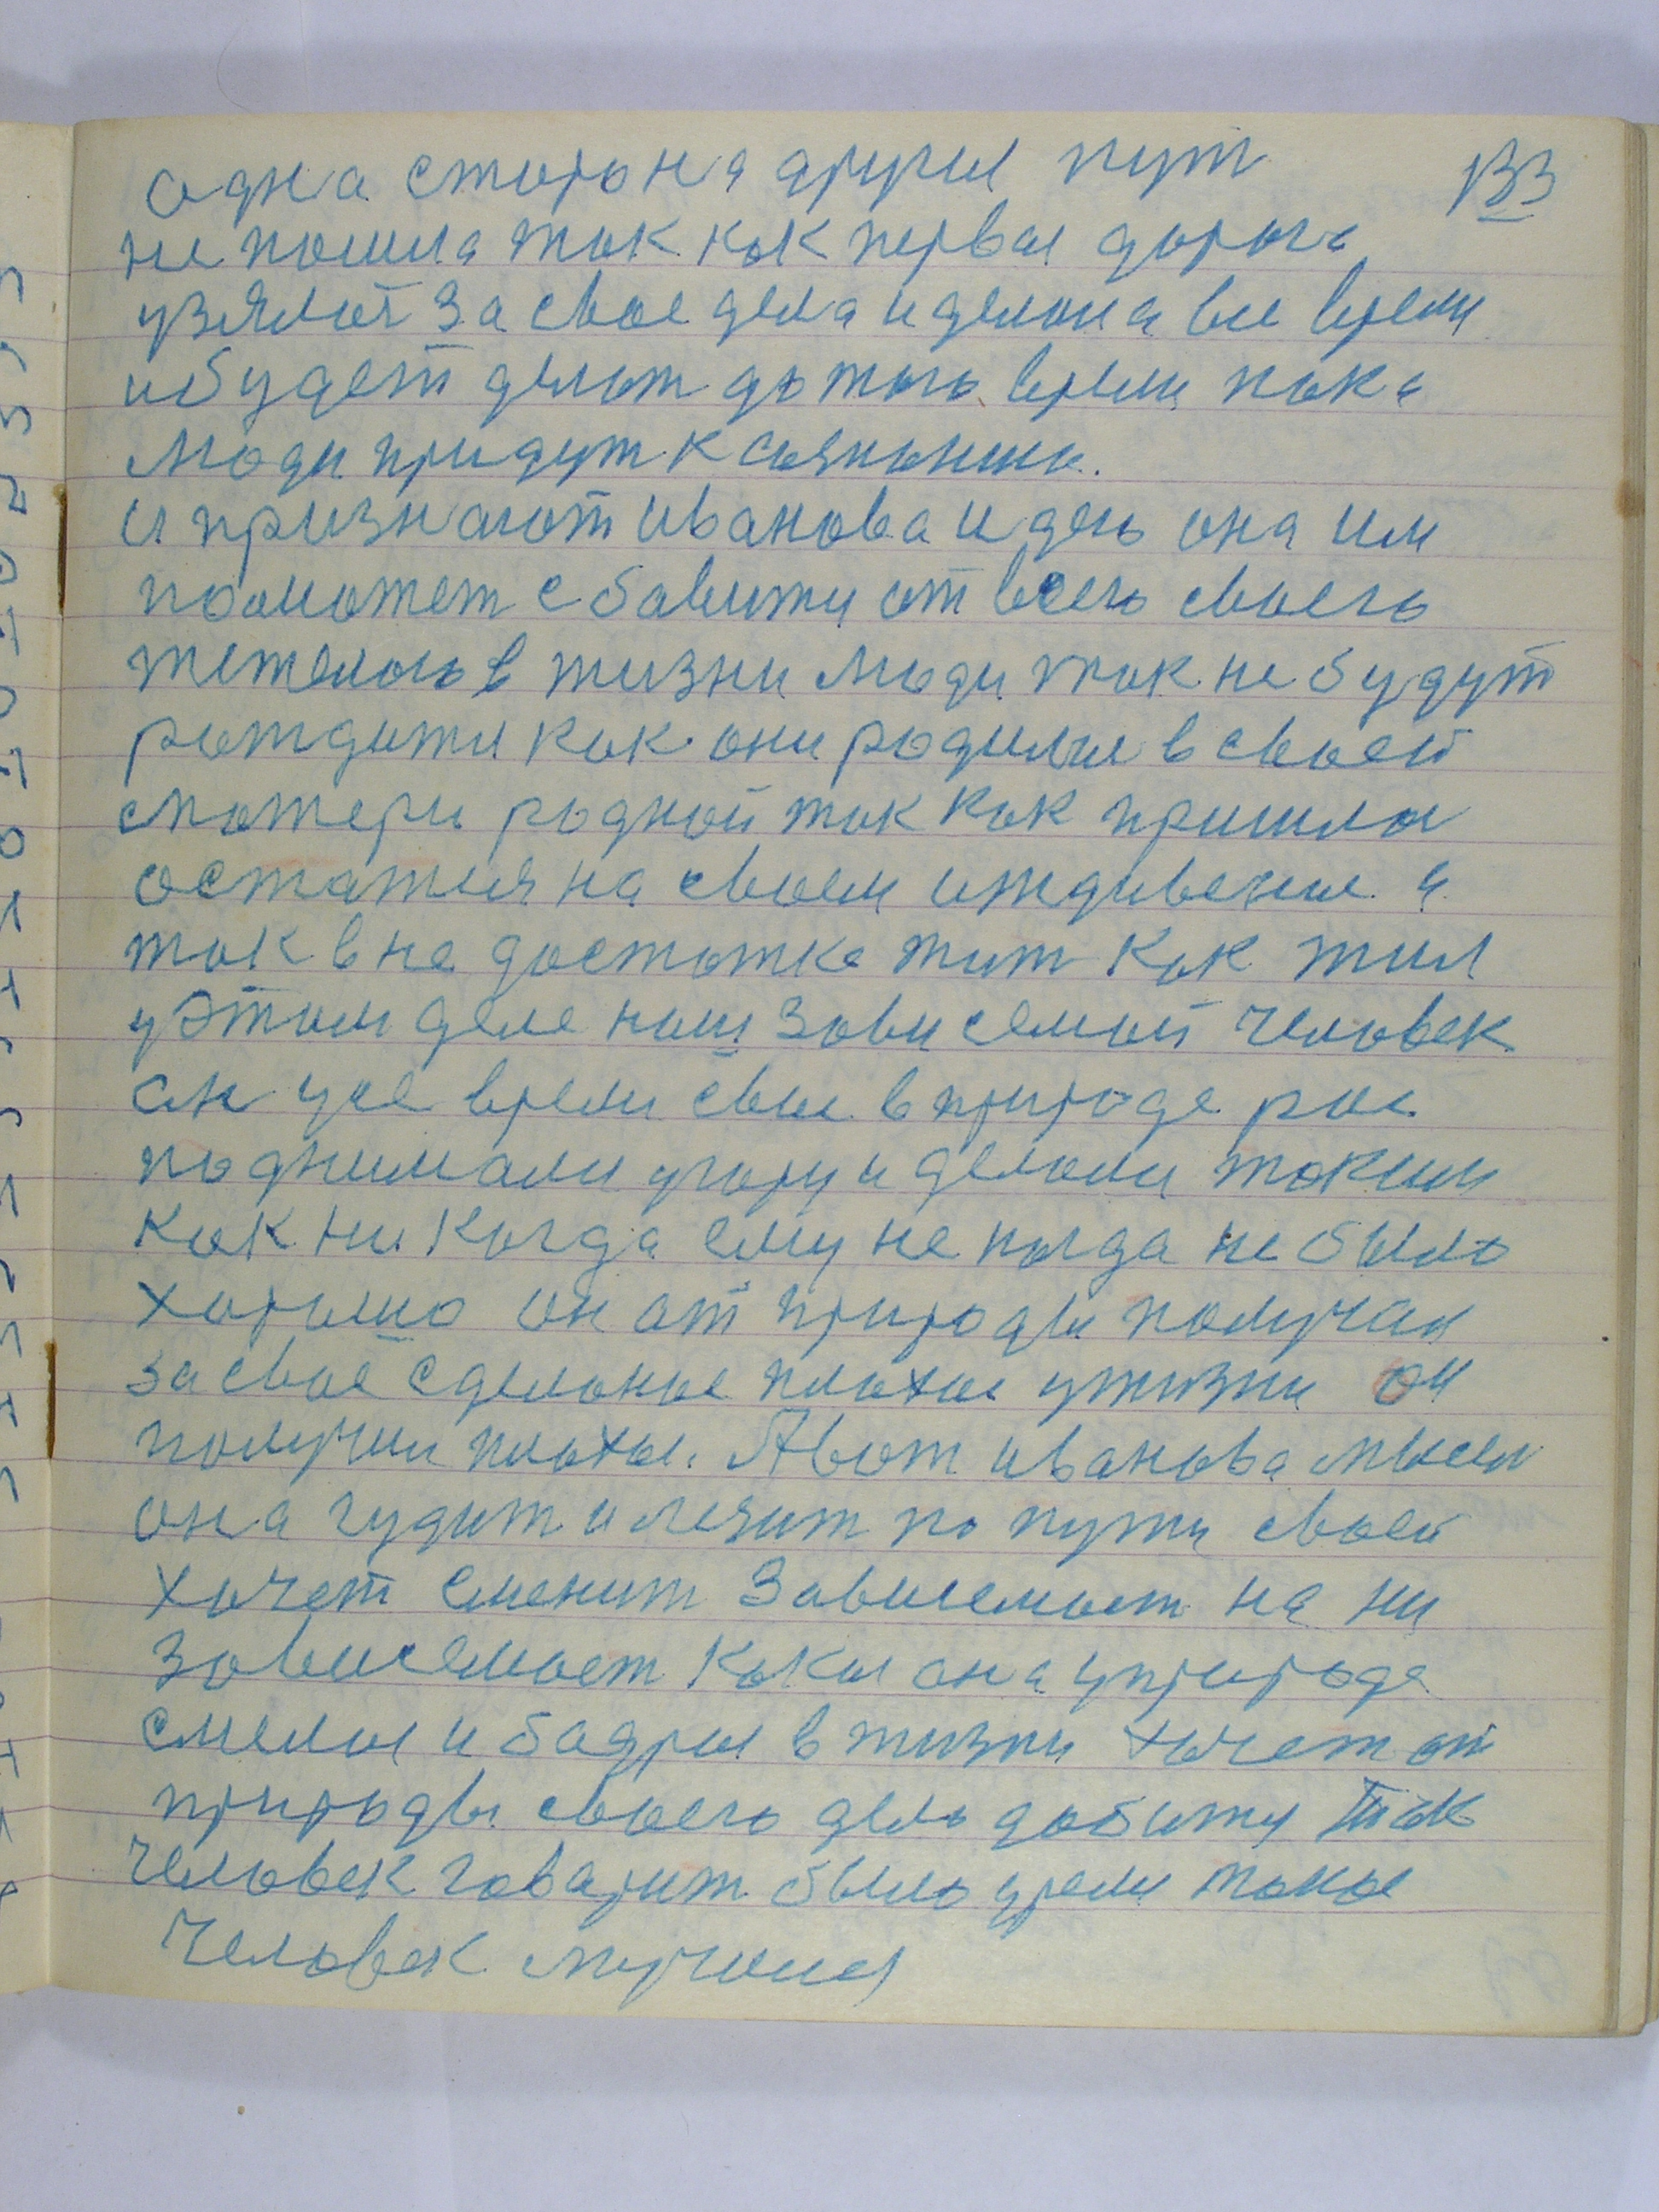 133
одна сторона другая пут
не пошла так как первая дорога
узялас за свое дела и делана все время
и будет делат до того время пока
люди придут к сазнанию.
и признают иванова идею она им
поможет сбавитя от всего своего
тежелого в жизни люди так не будут
рождатя как они родилис в своей
матери родной так как пришлос
остатся на своем иждивение а
так в не достатке жит как жил
у этом деле наш зависемой человек
он усе время свое в природе рос
поднимали угору и делали таким
как ни когда ему не когда не было
хорошо он от природы получал
за свое сделаное плохое ужизни он
получил плохое. А вот иванова мысля
она гудит и лезит по путя своей
хочет сменит зависемаст на ни
зависемаст какая она уприроде
смелая и бодрая в жизни хочет от
природы своего дело добитя так
человек говарит было время такое
человек мучился